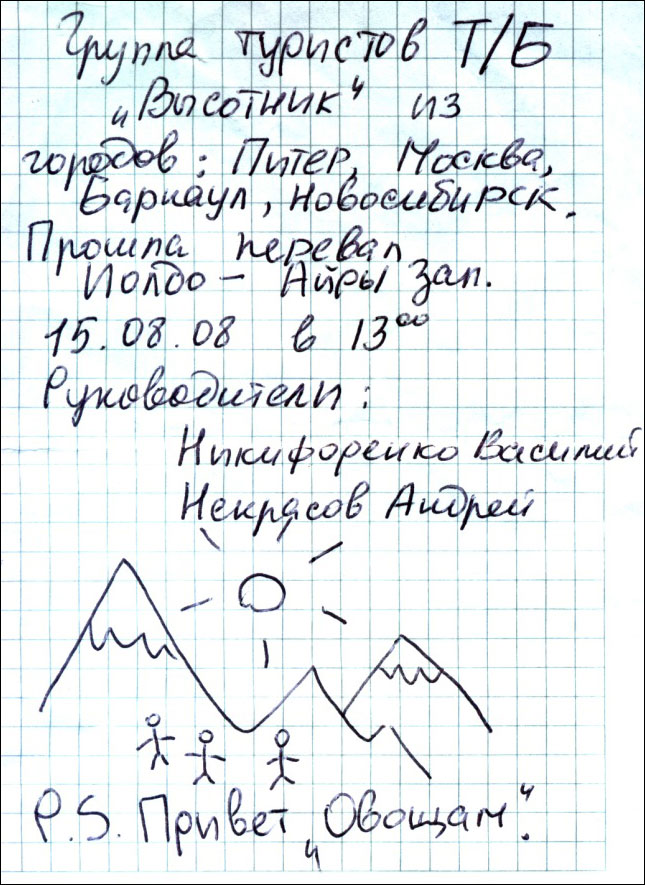 Группа туристов Т/Б
„Высотник“ из
городов: Питер, Москва,
Барнаул, Новосибирск.
Прошла перевал
Иолдо – Айры зап.
15.08.08 в 13⁰⁰
Руководители:
Никифоренко Василий
Некрасов Андрей
P.S. Привет „Овощам“.